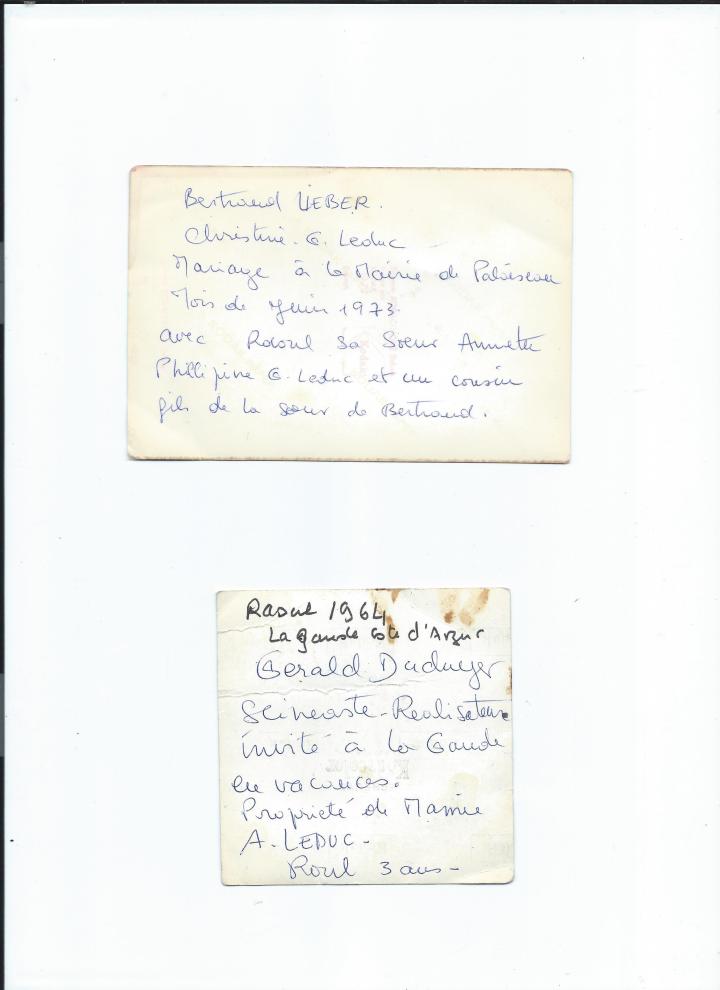 Bertrand LIEBER.
Christine. G. Leduc
Mariage à la Mairie de Palaiseau
Mois de Juin 1973.
avec Raoul sa Soeur Annette
Phillipine G. Leduc et un cousin
fils de la soeur de Bertrand.
Raoul 1964
La Gaude Côte d'Azur
Gerald
Scineaste-Realisateur
invité à la Gaude
en vacances.
Propriété de Mamie
A. LEDUC-
Roul 3 ans-